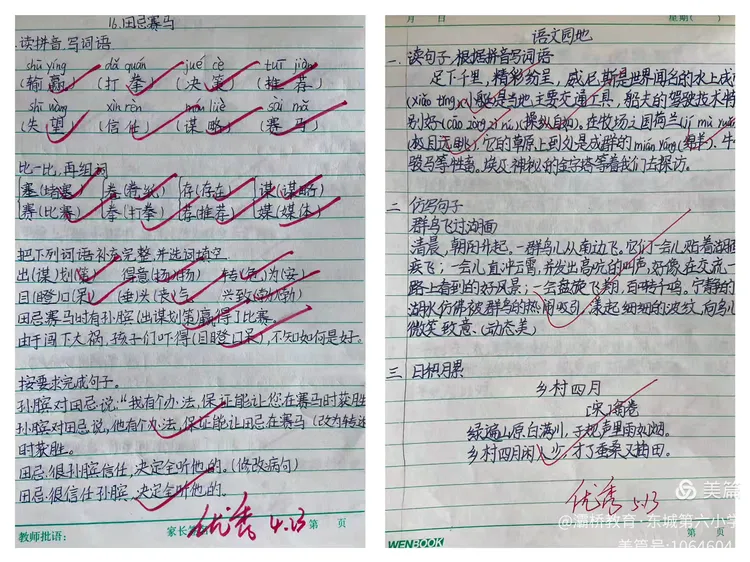 16.田忌赛马
一.读拼音,写词语
shū yíng dǎ quán jué cè tuī jiàn
(输赢)(打拳)(决策)(推荐)
shī wàng xìn rèn móu lüè sài mǎ
(失望)(信任)(谋略)(赛马)
比一比,再组词
塞(堵塞) 卷(卷纸) 存(存在) 谋(谋略)
赛(比赛) 拳(打拳) 荐(推荐) 媒(媒体)
把下列词语补充完整,并选词填空
出(谋)划(策) 得意(扬)(扬) 转(危)为(安)
目(瞪)口(呆) (垂)头(丧)气 兴致(勃)(勃)
田忌赛马时有孙膑(出谋划策)赢得了比赛。
由于闯下大祸,孩子们吓得(目瞪口呆),不知如何是好。
按要求完成句子。
孙膑对田忌说:“我有个办法,保证能让您在赛马时获胜
孙膑对田忌说,他有个办法,保证能让田忌在赛马(改为转述
时获胜。
田忌很孙膑信任,决定全听他的。(修改病句)
田忌很信任孙膑,决定全听他的。
优秀 4.23
教师批语: 家长 第 页
月 日 星期( )
语文园地
一.读句子,根据拼音写词语
足下千里,精彩纷呈,威尼斯是世界闻名的水上成
(xiǎo tǐng)(小艇)是当地主要交通工具,船夫的驾驶技术特
别好(cāo zòng zì rú)(操纵自如)。在牧场之国荷兰(jí mù yuǎn
(极目远眺),它的草原上到处是成群的mián yáng(绵羊)、牛
骏马等牲畜。埃及神秘的金字塔等着我们去探访。
二 仿写句子
群鸟飞过湖面
清晨,朝阳升起。一群鸟儿从南边飞,它们一会儿贴着湖面
疾飞;一会儿直冲云霄,并发出高亢的叫声,好像在交流一
路上看到的好风景;一会盘旋飞翔,引吭高鸣。宁静的
湖水仿佛被群鸟的热闹吸引,漾起细细的波纹,向鸟儿
微笑致意。(动态美)
三 日积月累
乡村四月
[宋]翁卷
绿遍山原白满川,子规声里雨如烟。
乡村四月闲人少,才了蚕桑又插田。
优秀 5.13
美篇
@灞桥教育·东城第六小学
美篇号:1064604
WENBOOK 第 页